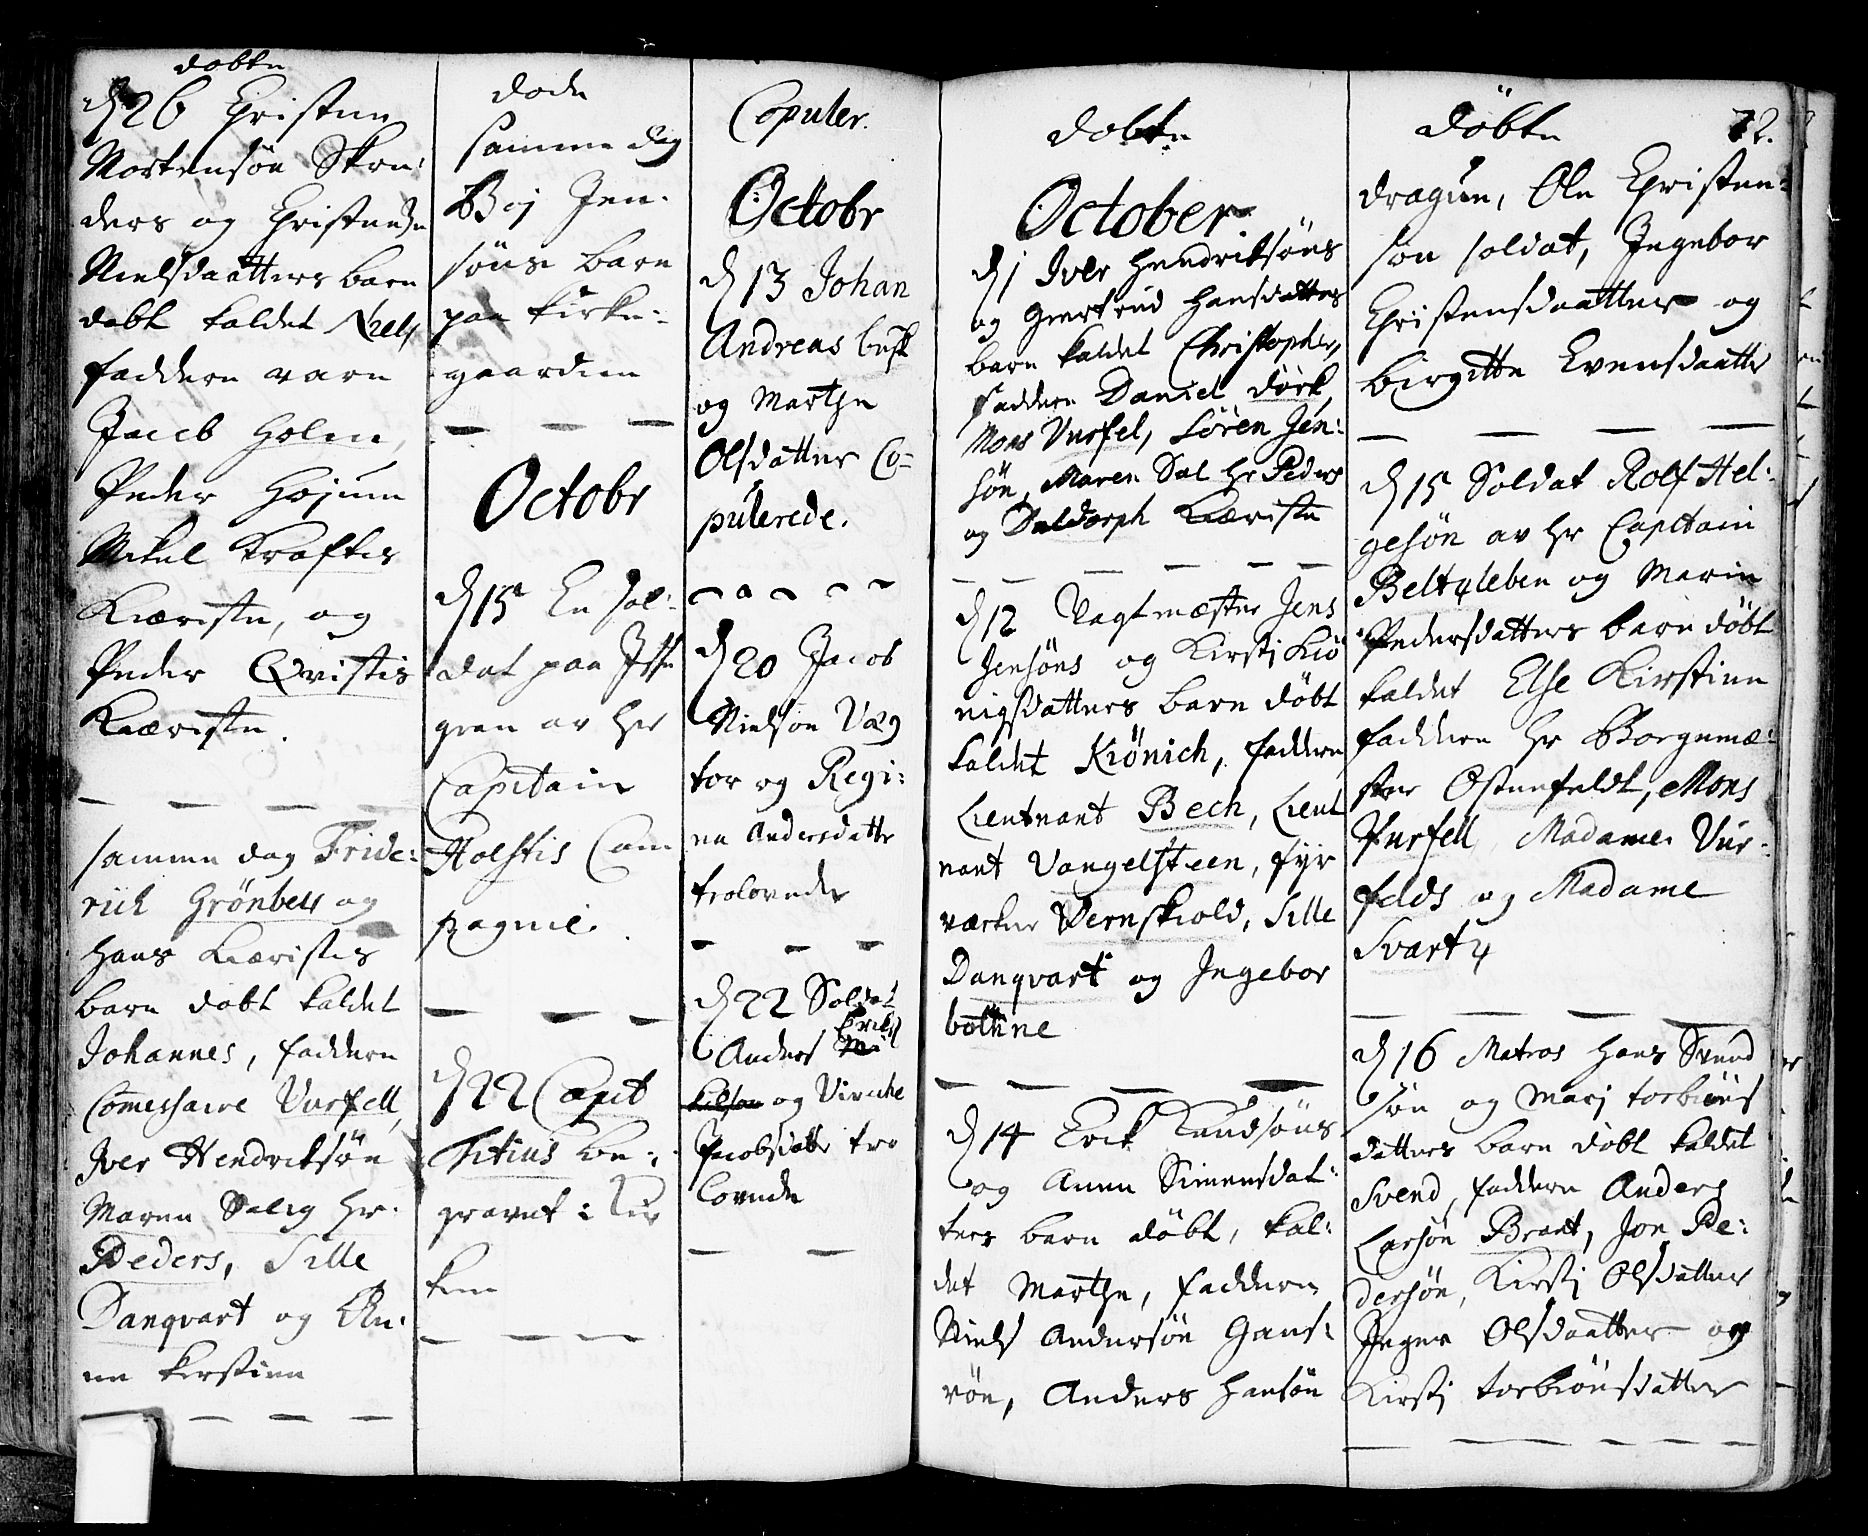 dobte
d 26 Christen
Mortensøn Skre-
ders og Christendse
Nielsdaatters barn
dobt kaldet Niels
faddern varn
Jacob Holm,
Peder Hojum
Mikel Kraftes
Kieriste, og
Peder Qvistis
Kieriste.
samme dag Fride-
rich Grønbeks og
hans Kieristes
barn dobt kaldet
Johannes, faddern
Commessarre Vurfell,
Iver Hendriksøn
Maren Salig Hr.
Peders, Sille
Danqvart og An-
ne Kirstine
dode
samme dag
Boj Jen-
søns barn
paa Kirke-
gaarden
Octobr
d 15 En sol-
dat paa
av her
Capitain
Holstis Com
pagnie.
d 22 Capit
Titius be-
gravet i Kir
ken
Copuler.
Octobr
d 13 Johan
Andreas busk
og Marthe
Olsdatter Co-
pulerede.
d 20 Jacob
Nielsøn Væg
tor og Regi-
ne Andersdatter
trolovede
d 22 Soldat
Anders Erik
og Viveche
Jacobsdatter tro
lovede
dobte
October
d 1 Iver Hendriksøns
og Giertrud Hansdatters
barn kaldet Christopher,
faddern Daniel Dørk,
Mons Vurfel, Søren Jen-
søn, Maren Sal Hr Peders
og Daldorph Kieriste
d 12 Vagtmæster Jens
Jensøns og Kirsti Kiø
nigsdatters barn døbt
kaldet Kiønich, faddern
Lieutnant Bech, Lieut
nant Vangelsteen, fyr
værker Vernskiold, Sille
Danqvart og Ingebor
bothne
d 14 Erik Knudsøns
og Anne Simensdat-
ters barn døbt, kal-
det Marthe, faddern
Niels Andersøn Gans-
røn, Anders Hansøn
døbte
72.
dragun, Ole Christen-
søn soldat, Ingebor
Christensdaatter og
birgitte Evensdaatter
d 15 Soldat Rolf Hel-
gesøn av Hr Capitain
Beltzleben og Marin
Pedersdatters barn døbt
kaldet Else Kirstine
faddern Hr Borgemæ-
ster Ostenfeldt, Mons
Vurfell, Madame Vur-
felds og Madame
Svartz
d 16 Matros Hans Svend
søn og Marj torbiøns
datters barn døbt kaldet
Svend, faddern Anders
Larsøn Brant, Jon Pe-
dersøn, Kirsti Olsdatter
Inger Olsdaatter og
Kirsti torbiønsdatter